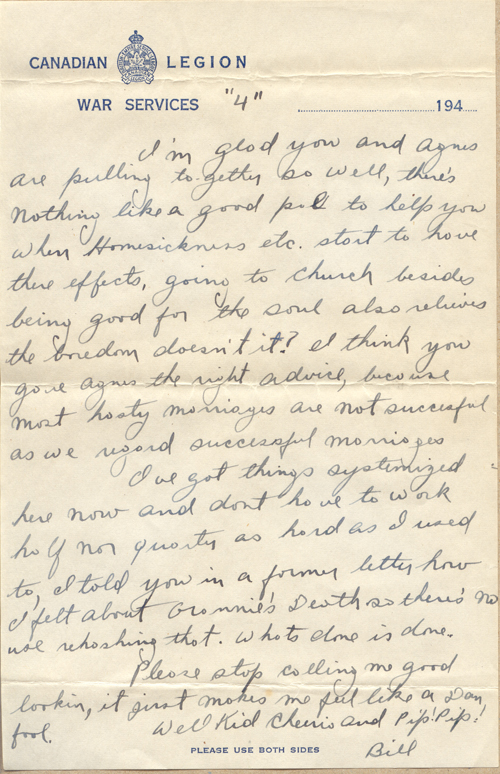 CANADIAN LEGION
WAR SERVICES "4" 194
I'm glad you and Agnes
are pulling to-gether so well, there's
nothing like a good pal to help you
when Homesickness etc. start to have
there effects, going to church besides
being good for the soul also relieves
the boredom doesn't it? I think you
gave Agnes the right advice, because
most hasty marriages are not succesful
as we regard successful marriages
I've got things systimized
here now and dont have to work
half nor quarter as hard as I used
to, I told you in a former letter how
I felt about Grannie's Death so there's no
use rehashing that. Whats done is done.
Please stop calling me good
lookin, it just makes me feel like a Dam
fool. Well Kid Cheerio and Pip! Pip!
Bill
PLEASE USE BOTH SIDES